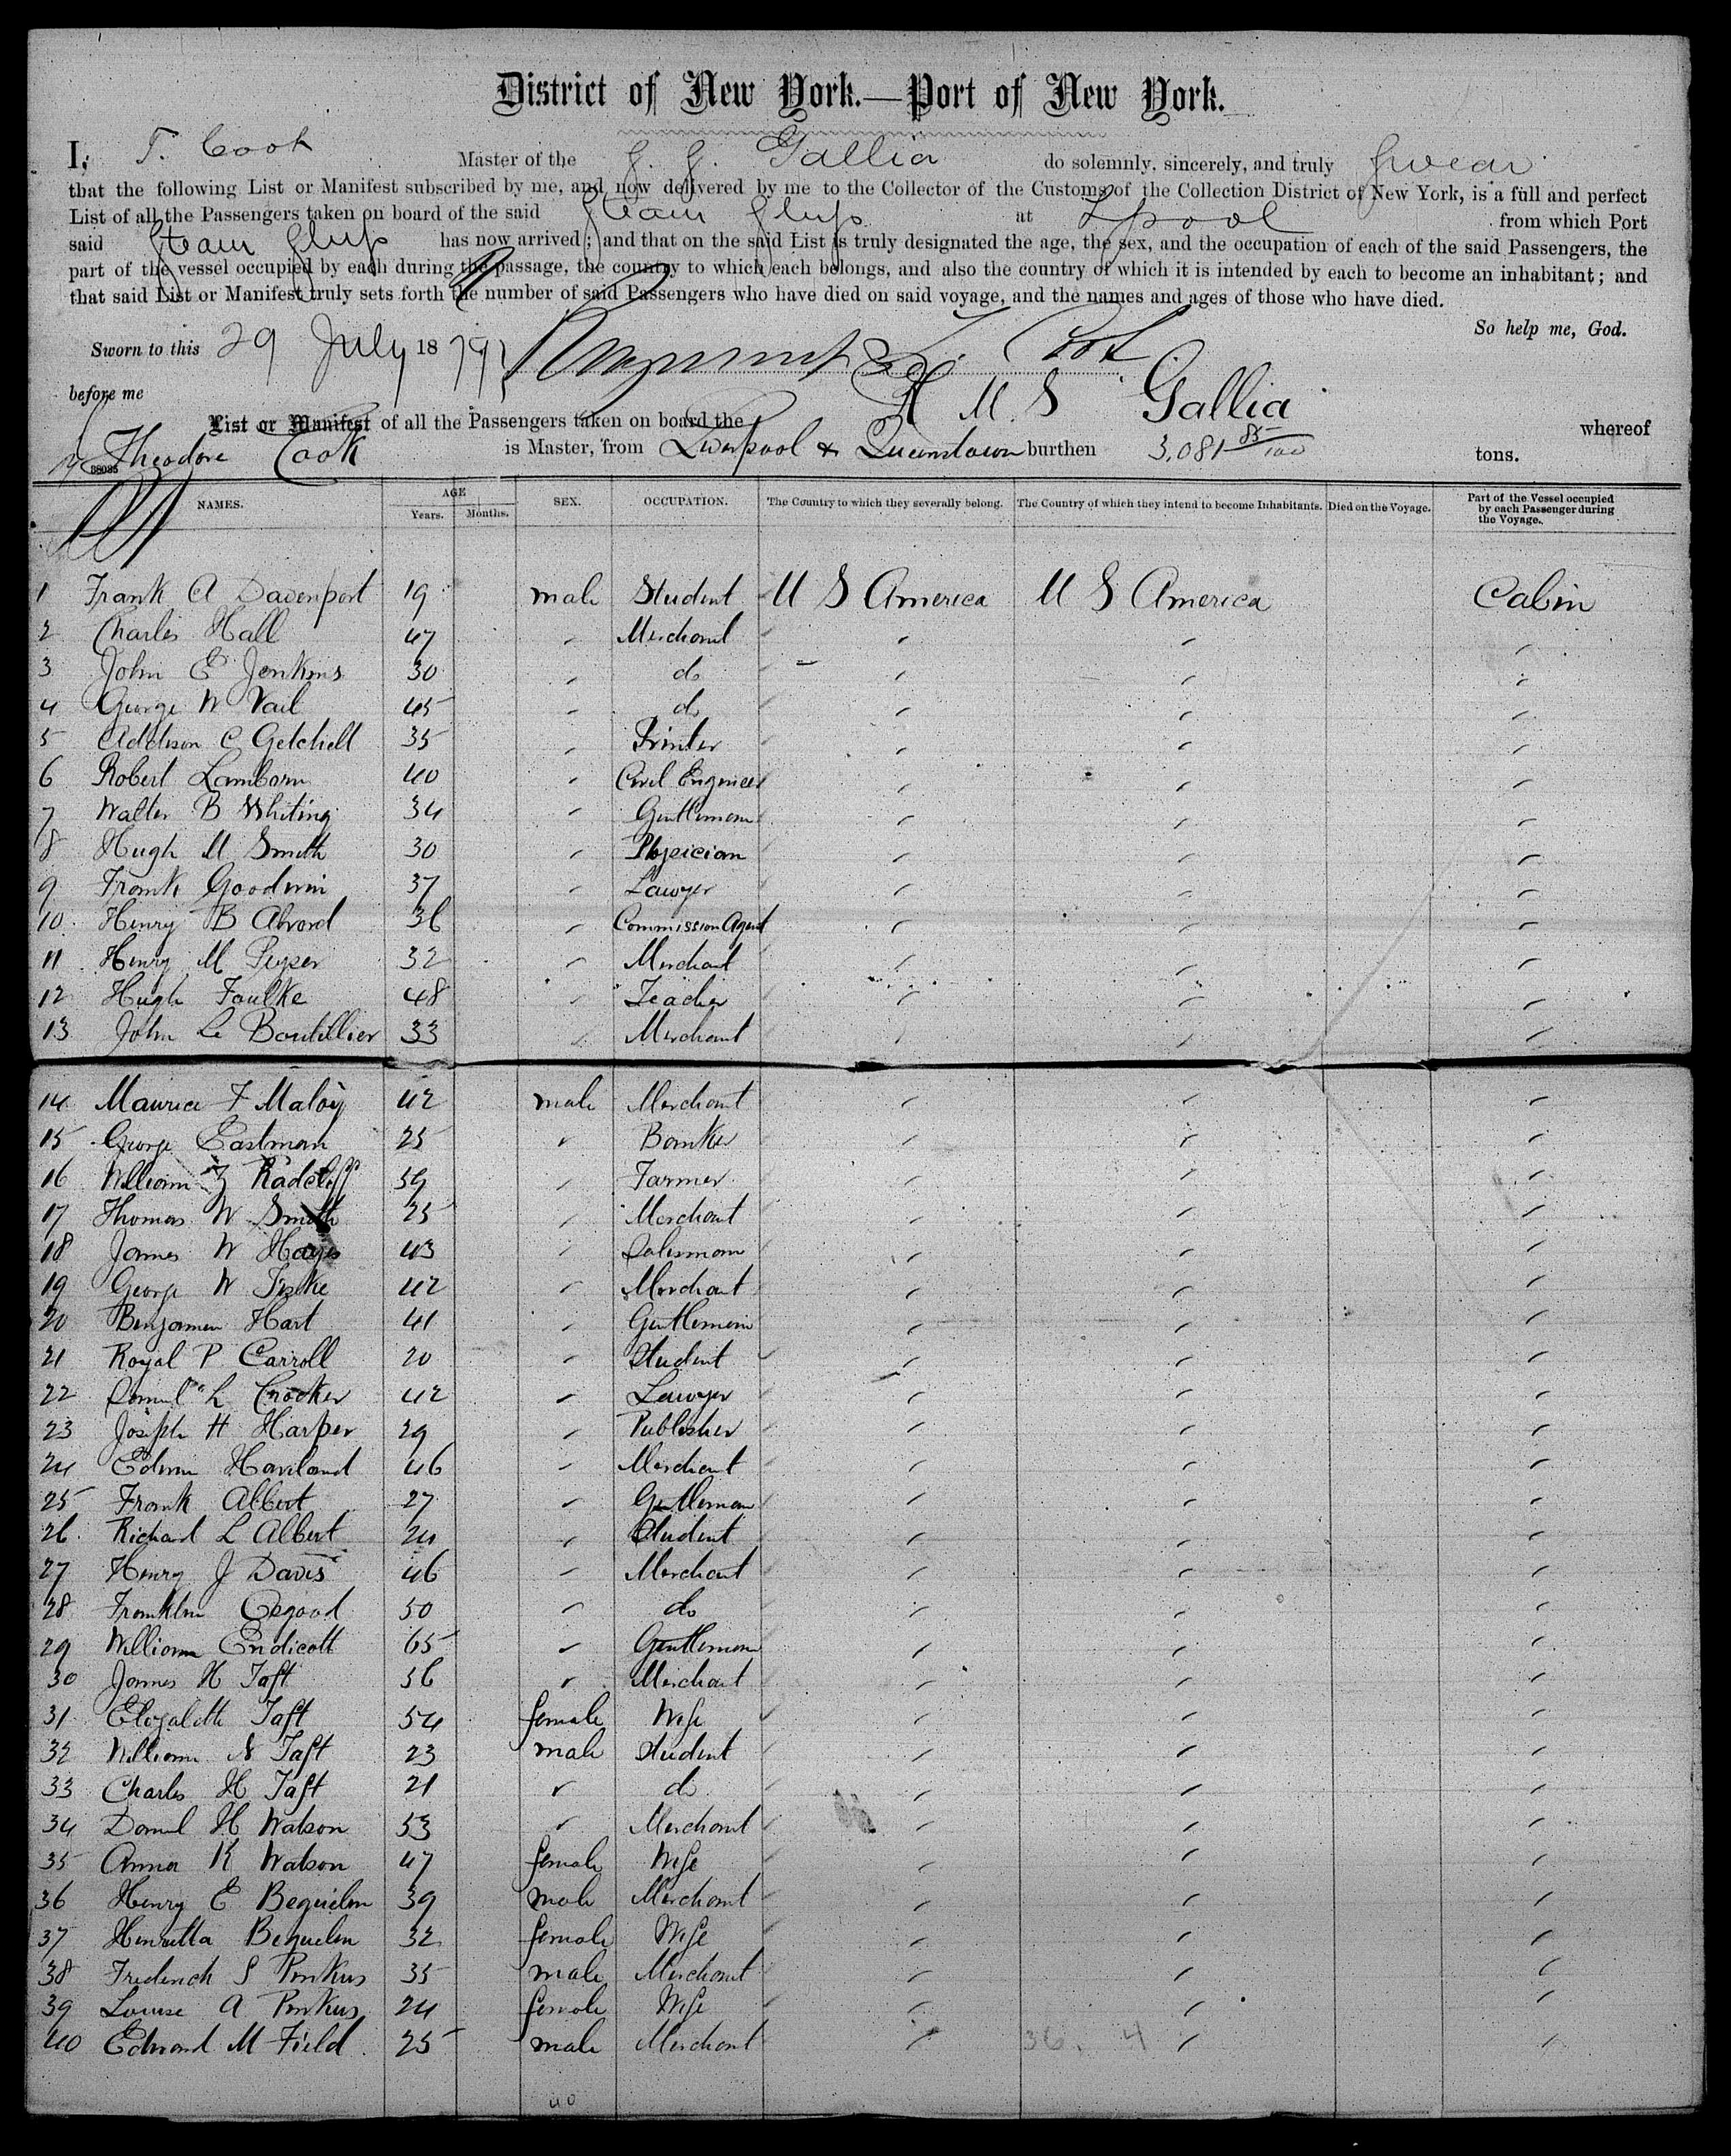 District of New York.—Port of New York.
I, T. Cook Master of the S. S. Gallia do solemnly, sincerely, and truly swear
that the following List or Manifest subscribed by me, and now delivered by me to the Collector of the Customs of the Collection District of New York, is a full and perfect
List of all the Passengers taken on board of the said Steam Ship at Lpool from which Port
said Steam Ship has now arrived; and that on the said List is truly designated the age, the sex, and the occupation of each of the said Passengers, the
part of the vessel occupied by each during the passage, the country to which each belongs, and also the country of which it is intended by each to become an inhabitant; and
that said List or Manifest truly sets forth the number of said Passengers who have died on said voyage, and the names and ages of those who have died.
So help me, God.
Sworn to this 29 July 1879 Cook
before me
List or Manifest of all the Passengers taken on board the R M S Gallia whereof
Theodore Cook is Master, from Liverpool & Queenstown burthen 3,081 85/100 tons.
38085
NAMES. AGE Years. Months. SEX. OCCUPATION. The Country to which they severally belong. The Country of which they intend to become Inhabitants. Died on the Voyage. Part of the Vessel occupied by each Passenger during the Voyage.
1 Frank A Davenport 19 male Student U S America U S America Cabin
2 Charles Hall 47 " Merchant " " "
3 John E Jenkins 30 " do " " "
4 George W Vail 45 " do " " "
5 Addison C Getchell 35 " Printer " " "
6 Robert Lamborn 40 " Civil Engineer " " "
7 Walter B Whiting 34 " Gentleman " " "
8 Hugh M Smith 30 " Physician " " "
9 Frank Goodwin 37 " Lawyer " " "
10 Henry B Alvord 36 " Commission Agent " " "
11 Henry M Peyser 32 " Merchant " " "
12 Hugh Foulke 48 " Teacher " " "
13 John Le Boutillier 33 " Merchant " " "
14 Maurice F Maloy 42 male Merchant " " "
15 George Eastman 25 " Banker " " "
16 William Z Radcliff 59 " Farmer " " "
17 Thomas W Smith 25 " Merchant " " "
18 James W Hayes 43 " Salesman " " "
19 George W Fiske 42 " Merchant " " "
20 Benjamin Hart 41 " Gentleman " " "
21 Royal P Carroll 20 " Student " " "
22 Samuel L Crocker 42 " Lawyer " " "
23 Joseph H Harper 29 " Publisher " " "
24 Edwin Haviland 46 " Merchant " " "
25 Frank Albert 27 " Gentleman " " "
26 Richard L Albert 24 " Student " " "
27 Henry J Davis 46 " Merchant " " "
28 Franklin Osgood 50 " do " " "
29 William Endicott 65 " Gentleman " " "
30 James H Taft 56 " Merchant " " "
31 Elizabeth Taft 54 female Wife " " "
32 William N Taft 23 male Student " " "
33 Charles H Taft 21 " do " " "
34 Daniel H Watson 53 " Merchant " " "
35 Anna K Watson 47 female Wife " " "
36 Henry E Beguelin 39 male Merchant " " "
37 Henrietta Beguelin 32 female Wife " " "
38 Frederick S Pinkus 35 male Merchant " " "
39 Louise A Pinkus 24 female Wife " " "
40 Edward M Field 25 male Merchant " " "
36. 4
40